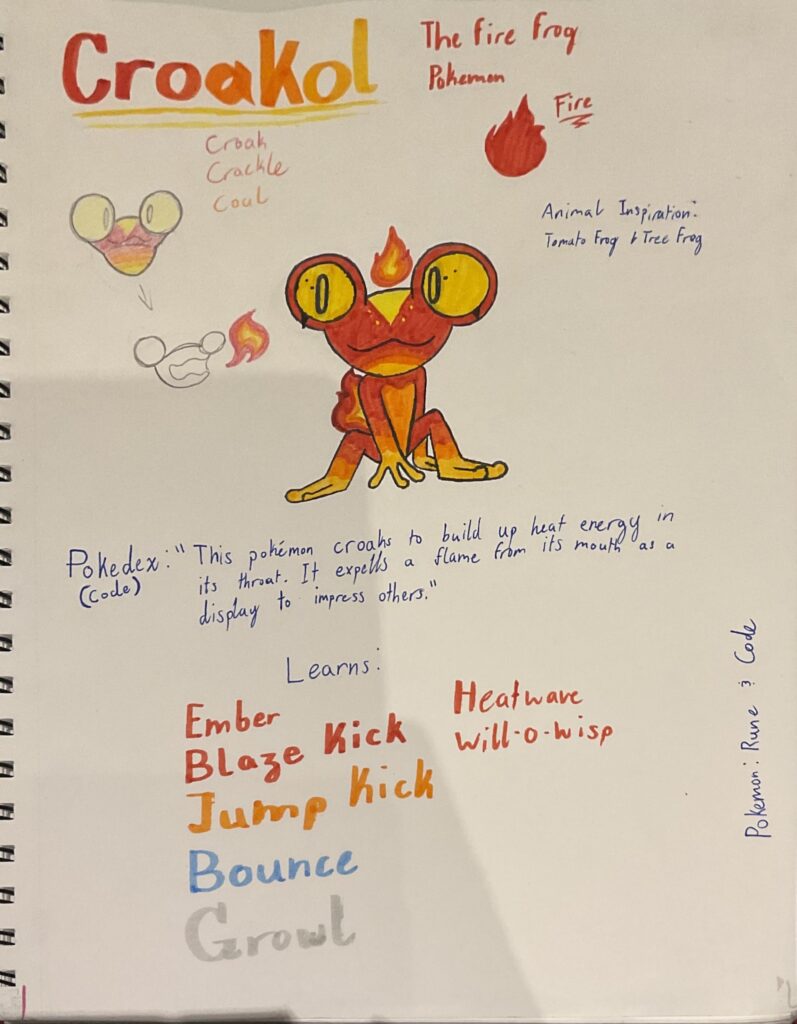 Croakol
The Fire Frog
Pokemon
Fire
Croak
Crackle
Coal
Animal Inspiration:
Tomato Frog & Tree Frog
Pokedex: "This pokémon croaks to build up heat energy in
(Code) its throat. It expells a flame from its mouth as a
display to impress others."
Learns:
Ember
Blaze Kick
Jump Kick
Bounce
Growl
Heatwave
Will-o-wisp
Pokemon: Rune & Code